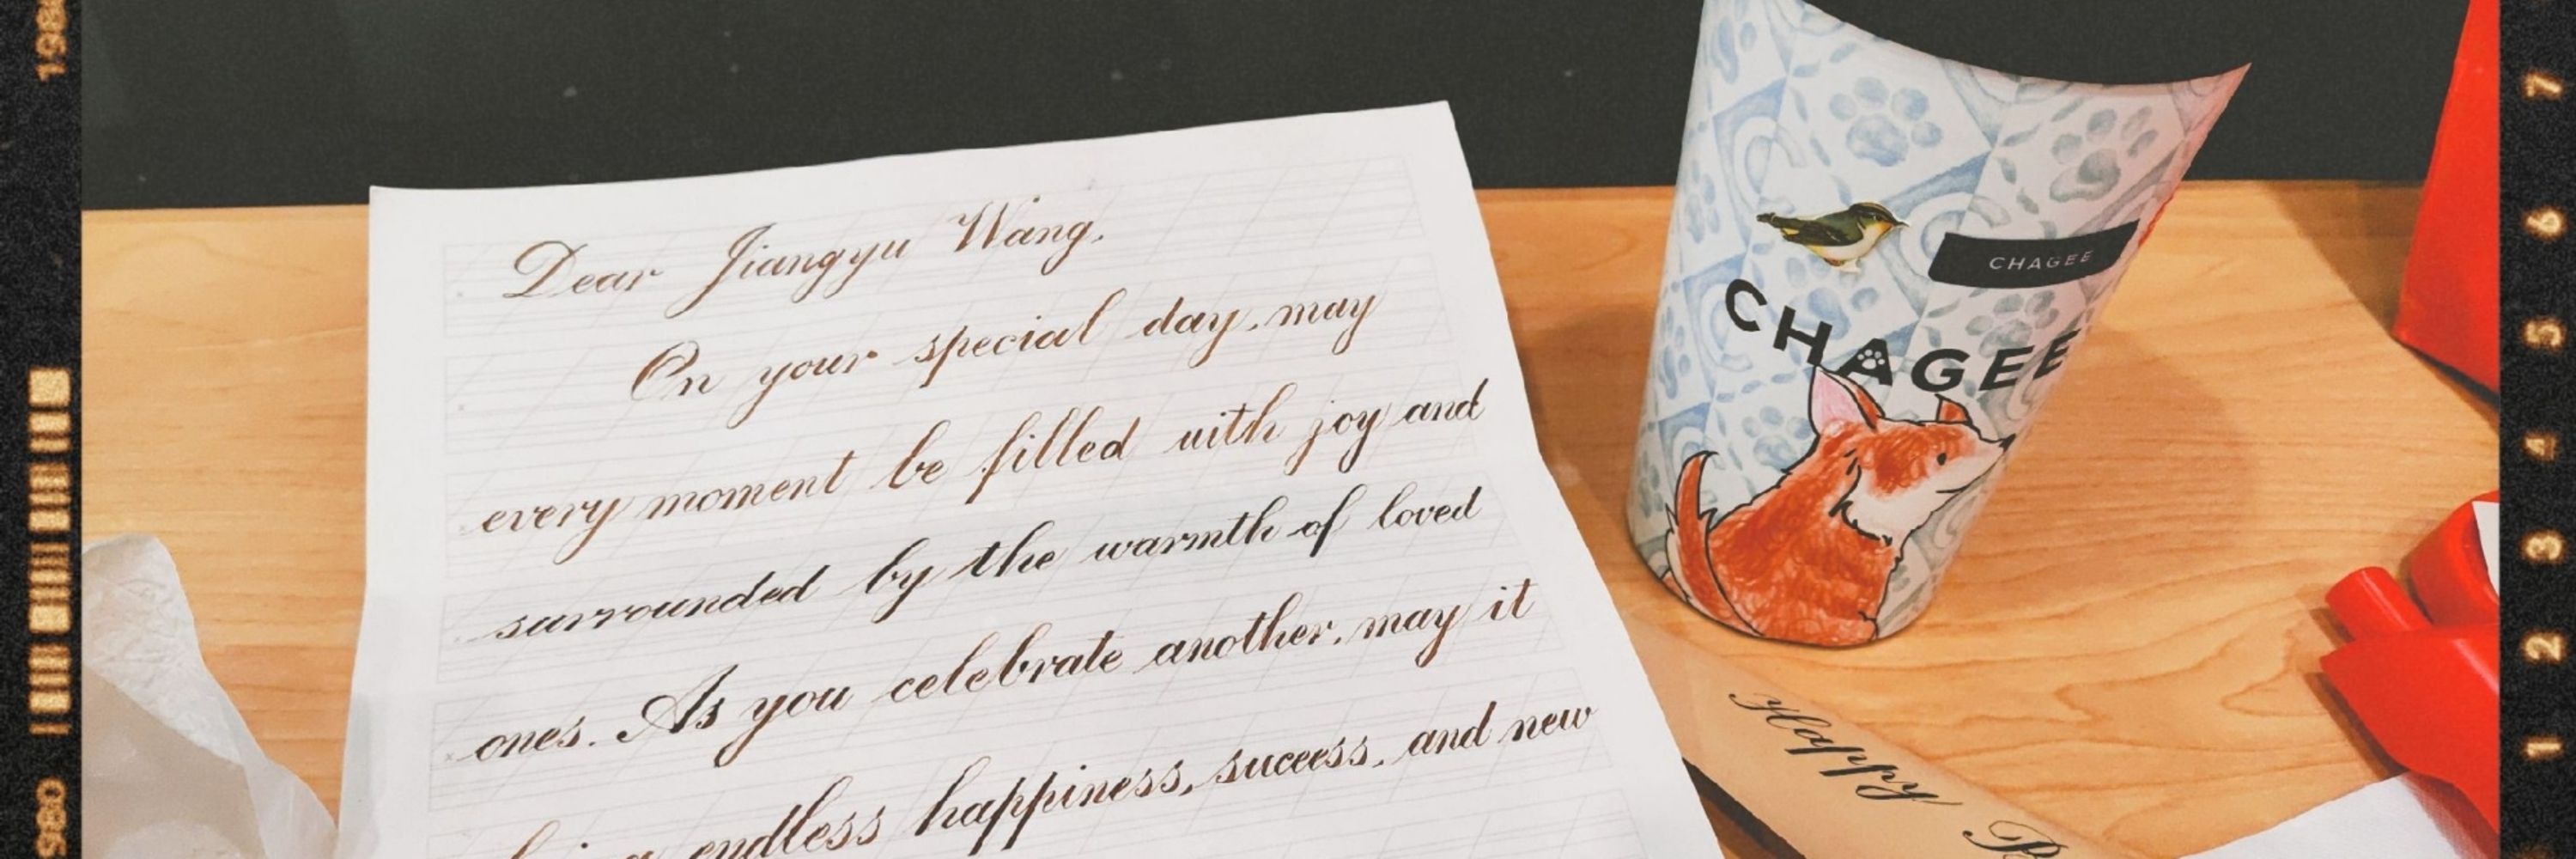 Dear Jiangyu Wang,
On your special day, may
every moment be filled with joy and
surrounded by the warmth of loved
ones. As you celebrate another, may it
endless happiness, success, and new
CHAGEE
CHAGEE
Happy
7
6
5
4
3
2
1